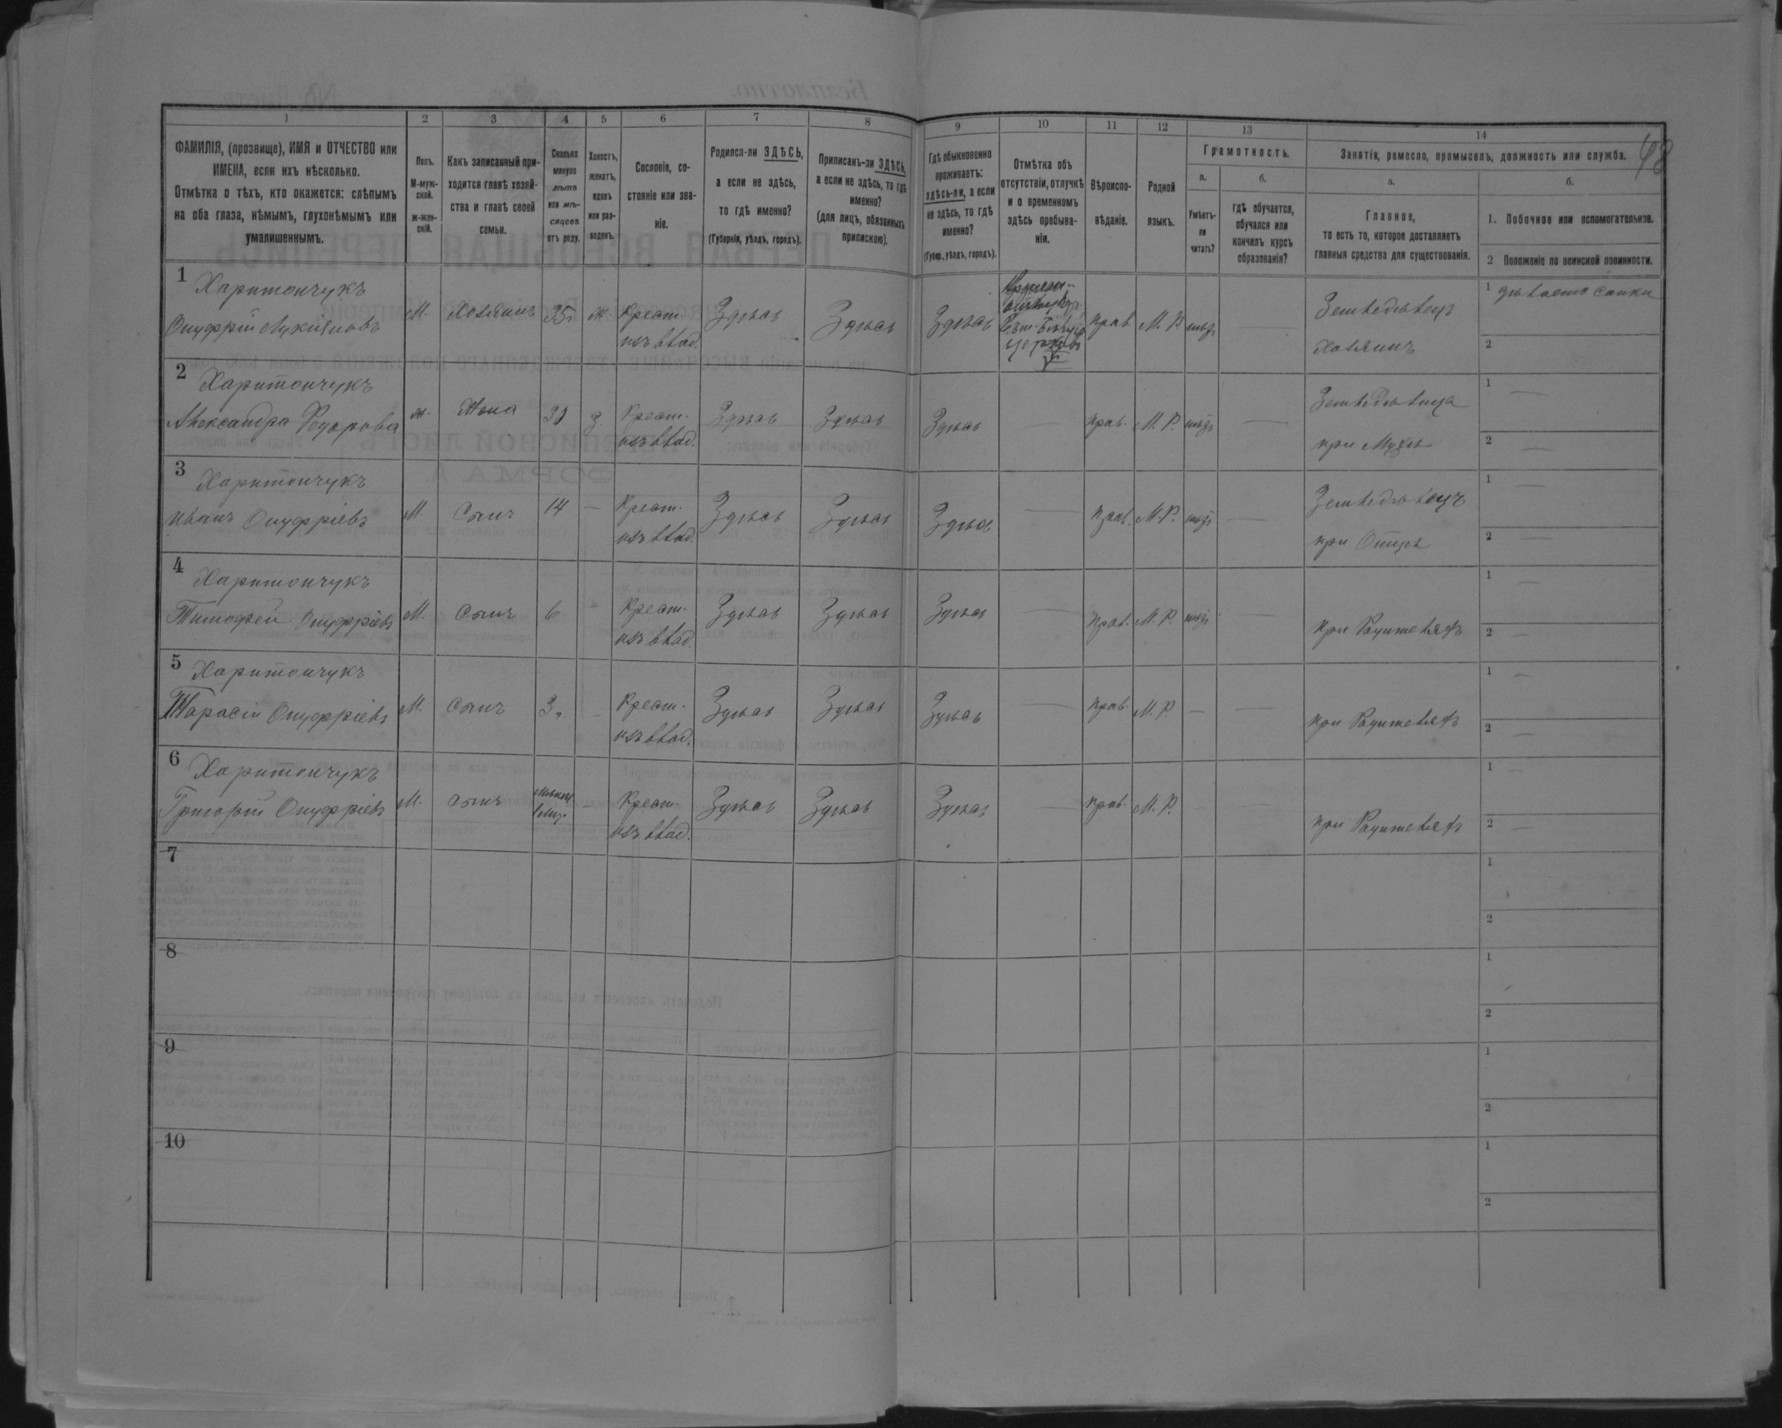 48
1
2
3
4
5
6
7
8
9
10
11
12
13
14
ФАМИЛІЯ, (прозвище), ИМЯ и ОТЧЕСТВО или
ИМЕНА, если ихъ нѣсколько.
Отмѣтка о тѣхъ, кто окажется: слѣпымъ
на оба глаза, нѣмымъ, глухонѣмымъ или
умалишеннымъ.
Полъ.
М-муж-
ской.
ж-жен-
скій.
Какъ записанный при-
ходится главѣ хозяй-
ства и главѣ своей
семьи.
Сколько
минуло
лѣтъ
или мѣ-
сяцевъ
отъ роду.
Холостъ,
женатъ,
вдовъ
или раз-
веденъ.
Сословіе, со-
стояніе или зва-
ніе.
Родился-ли ЗДѢСЬ,
а если не здѣсь,
то гдѣ именно?
(Губернія, уѣздъ, городъ).
Приписанъ-ли ЗДѢСЬ,
а если не здѣсь, то гдѣ
именно?
(для лицъ, обязанныхъ
припискою).
Гдѣ обыкновенно
проживаетъ:
здѣсь-ли, а если
не здѣсь, то гдѣ
именно?
(Губер., уѣздъ, городъ).
Отмѣтка объ
отсутствіи, отлучкѣ
и о временномъ
здѣсь пребыва-
ніи.
Вѣроиспо-
вѣданіе.
Родной
языкъ.
Грамотность.
а.
Умѣетъ-
ли
читать?
б.
гдѣ обучается,
обучался или
кончилъ курсъ
образованія?
Занятія, ремесло, промыселъ, должность или служба.
а.
Главное,
то есть то, которое доставляетъ
главныя средства для существованія.
б.
1. Побочное или вспомогательное.
2 Положеніе по воинской повинности.
1 Харитончукъ
Онуфрій Лукіяновъ М. Хозяинъ 35 ж. Крест.
изъ влад. Здѣсь Здѣсь Здѣсь
церковь прав. М. Р.
Земледѣлецъ
Хозяинъ
1 дѣлаетъ санки
2
2 Харитончукъ
Александра Федорова ж. Жена з. Крест.
изъ влад. Здѣсь Здѣсь Здѣсь — прав. М. Р. —
Земледѣлица
при Мужѣ
1 —
2 —
3 Харитончукъ
Иванъ Онуфріевъ М Сынъ 14 — Крест.
изъ влад. Здѣсь Здѣсь Здѣсь — прав. М. Р. —
Земледѣлецъ
при Отцѣ
1 —
2 —
4 Харитончукъ
Тимофей Онуфріевъ М. Сынъ 6 - Крест.
изъ влад. Здѣсь Здѣсь Здѣсь — прав. М. Р. —
при Родителяхъ
1 —
2 —
5 Харитончукъ
Тарасій Онуфріевъ М. Сынъ 3 - Крест.
изъ влад. Здѣсь Здѣсь Здѣсь — прав. М. Р. — —
при Родителяхъ
1 —
2 —
6 Харитончукъ
Григорій Онуфріевъ М. Сынъ — Крест.
изъ влад. Здѣсь Здѣсь Здѣсь — прав. М. Р. - —
при Родителяхъ
1 —
2 —
7
1
2
8
1
2
9
1
2
10
1
2